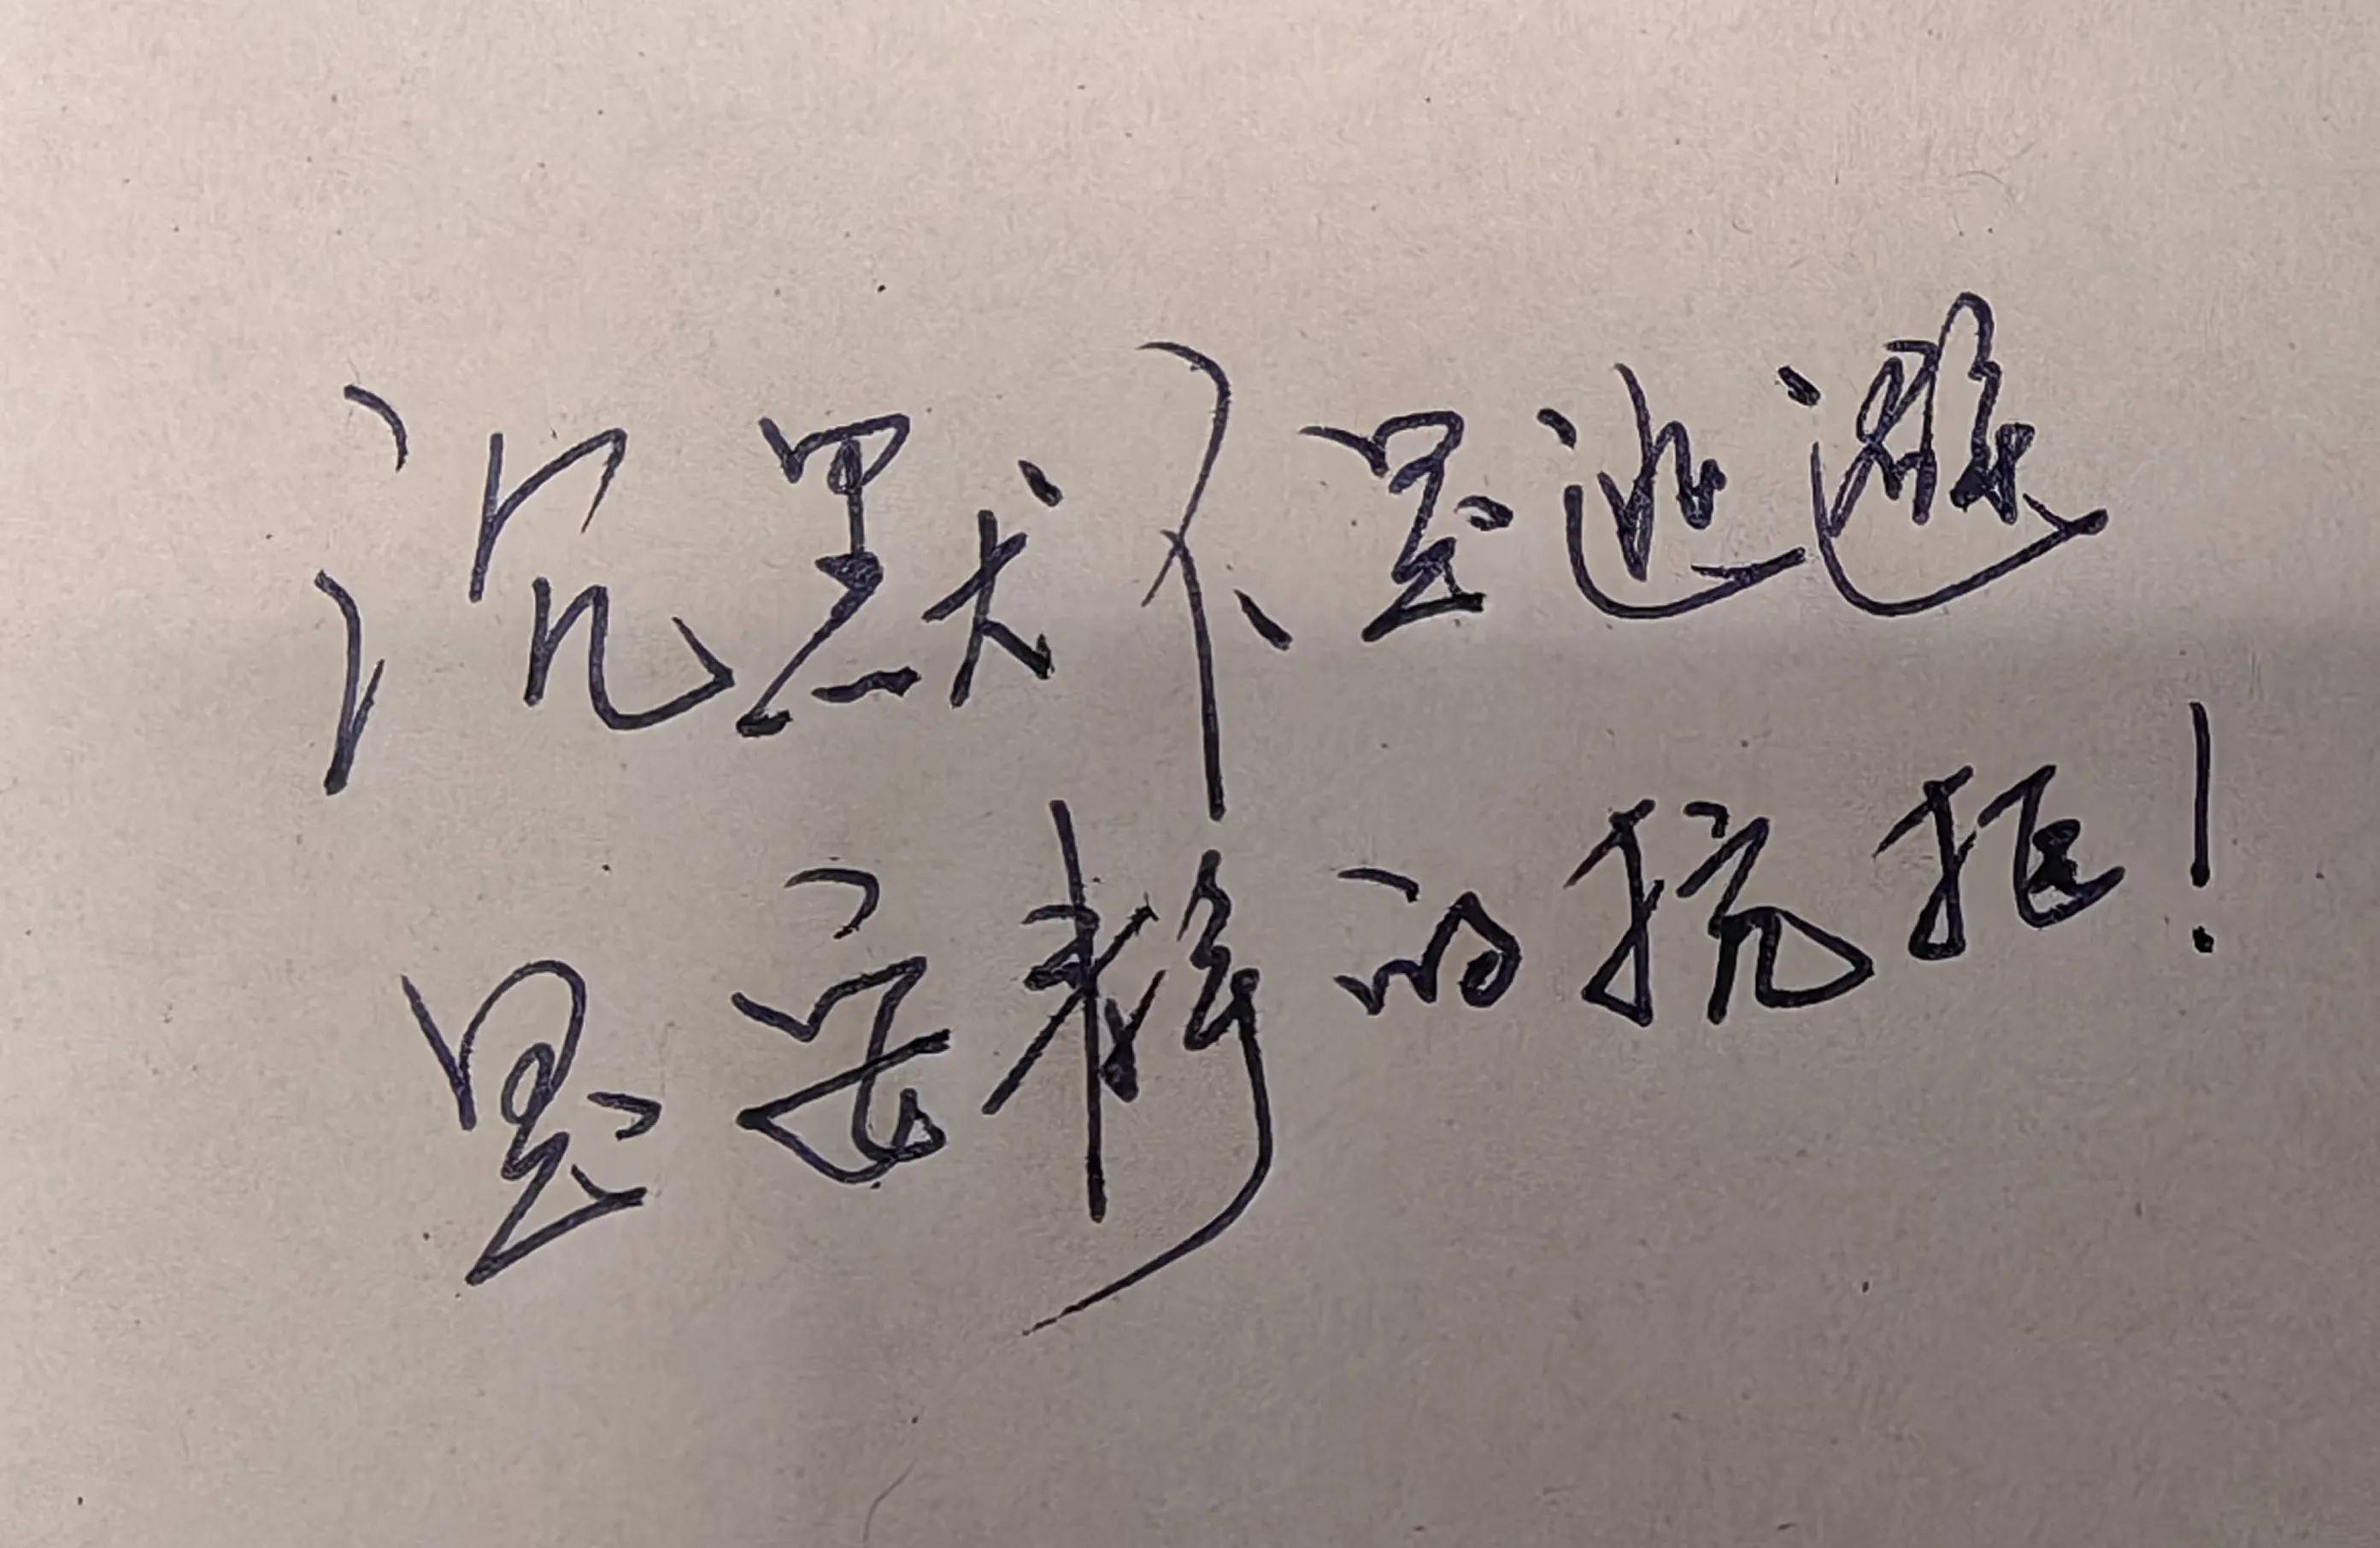 沉默不是逃避
是安静的抗拒!